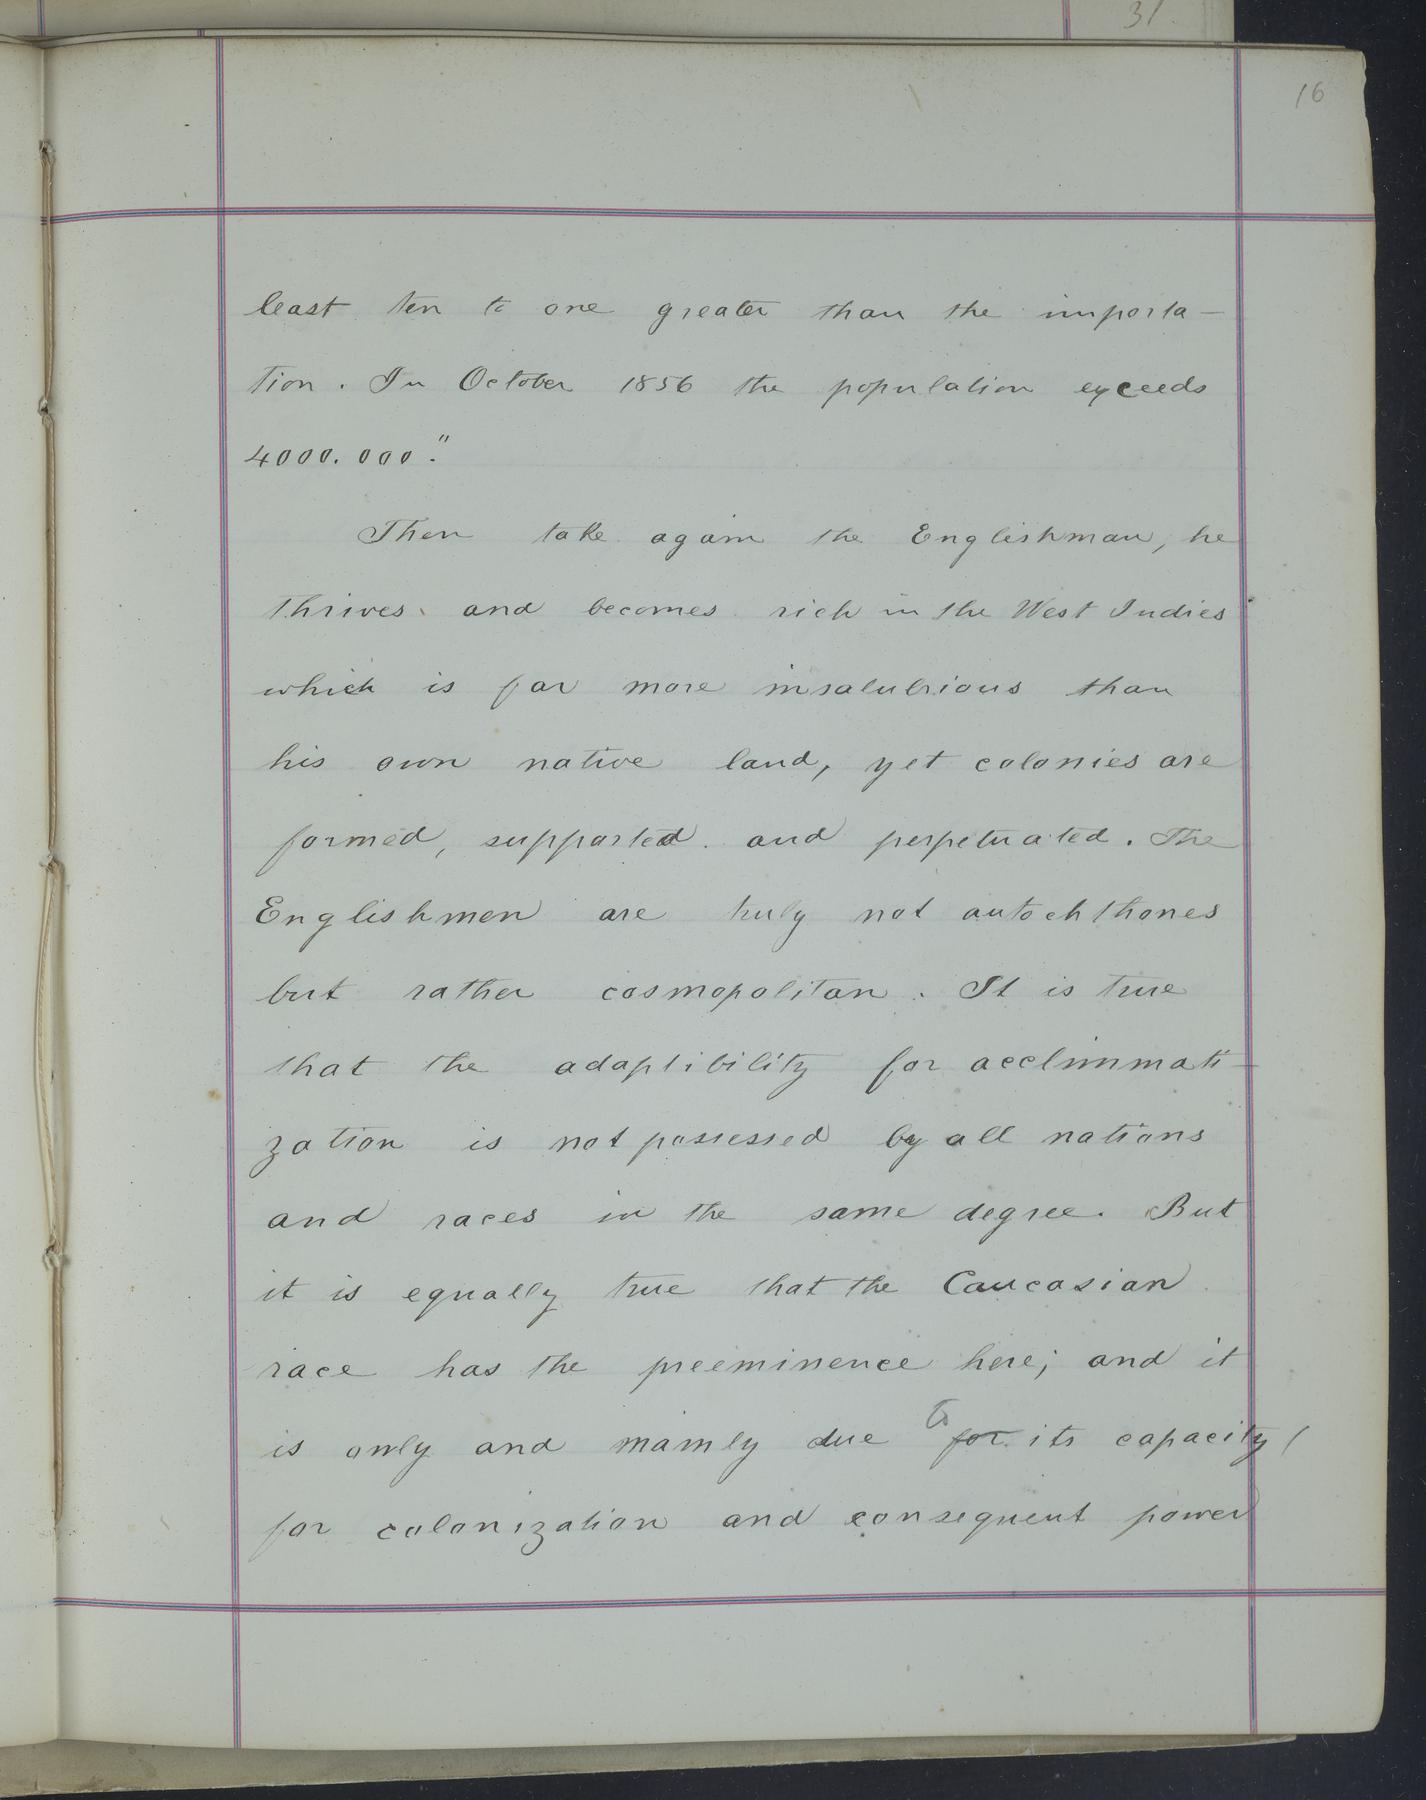 31
16
least ten to one greater than the importa-
tion. In October 1856 the population exceeds
4000.000."
Then take again the Englishman, he
thrives and becomes rich in the West Indies
which is far more insalubrious than
his own native land, yet colonies are
formed, supported and perpetuated. The
Englishmen are truly not autochthones
but rather cosmopolitan. It is true
that the adaptibility for acclimmati-
zation is not possessed by all nations
and races in the same degree. But
it is equally true that the Caucasian
race has the preeminence here; and it
is only and mainly due to for its capacity
for colonization and consequent power